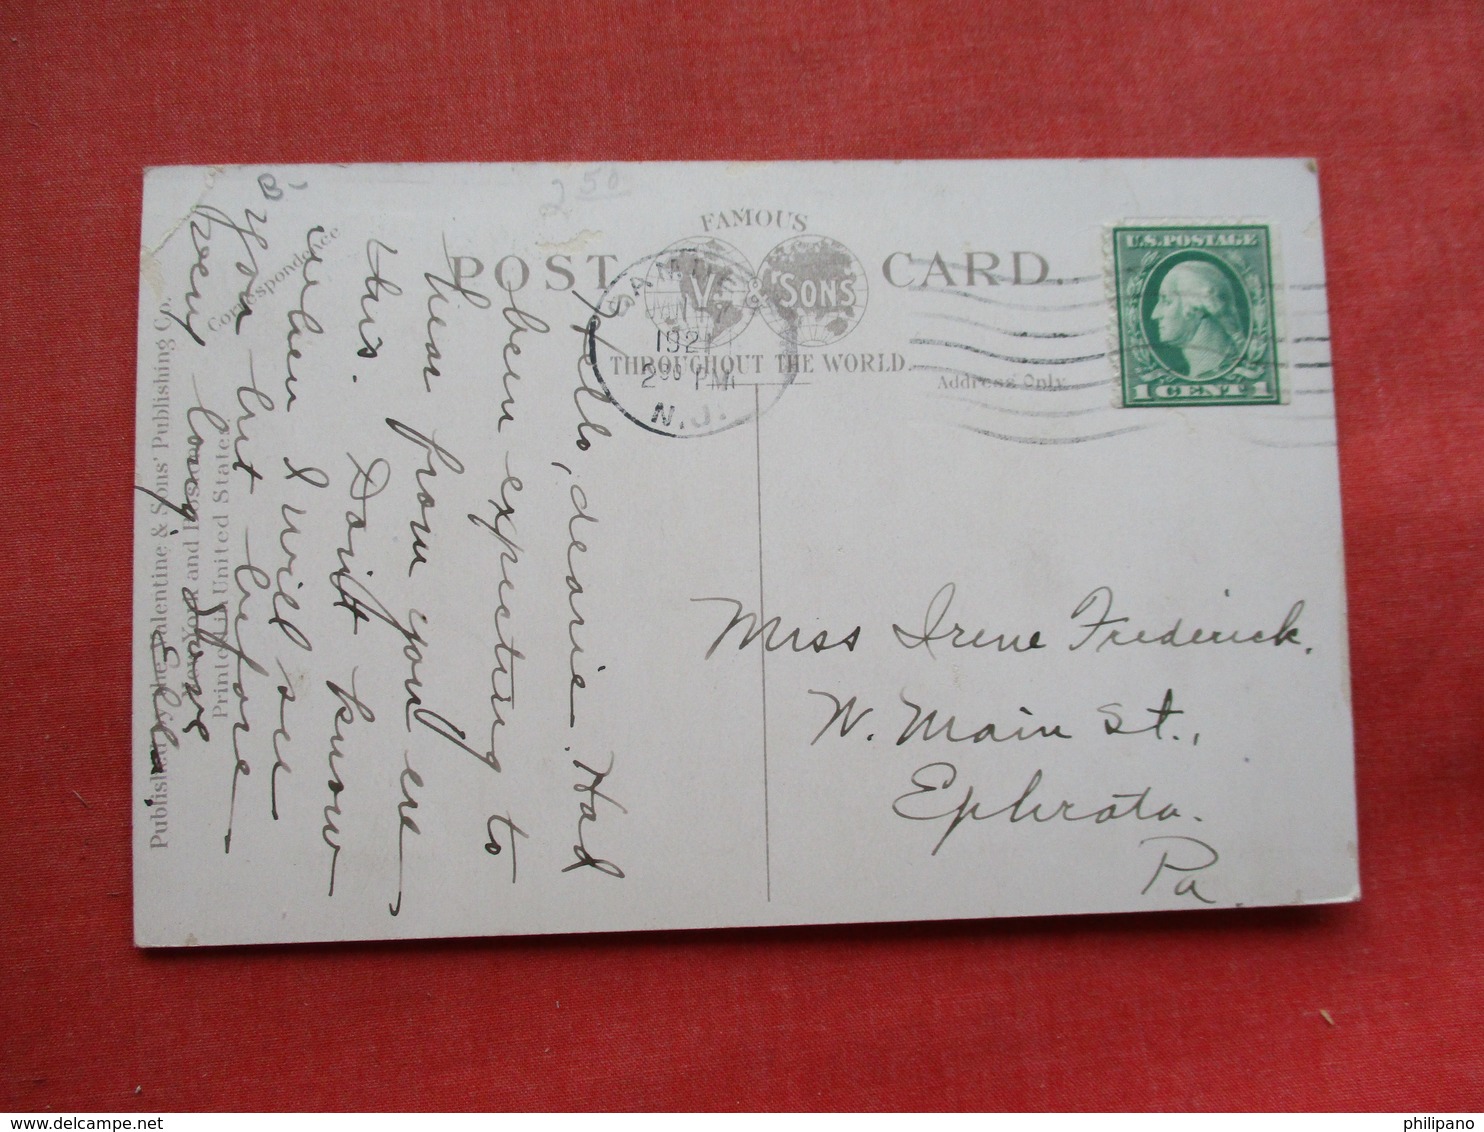 2 50
FAMOUS
POST CARD.
V. & SONS
THROUGHOUT THE WORLD.
Address Only
Correspondence
JUN 7
1921
2 30 PM
N.J.
U.S. POSTAGE
1 CENT 1
Hello, dearie. Had
been expecting to
hear from you ere
this. Don't know
when I will see
you but before
very long.
Love
Miss Irene Frederick.
W. Main St.,
Ephrata.
Pa.
Published by The Valentine & Sons' Publishing Co.
New York and Boston
Printed in United States
philipano